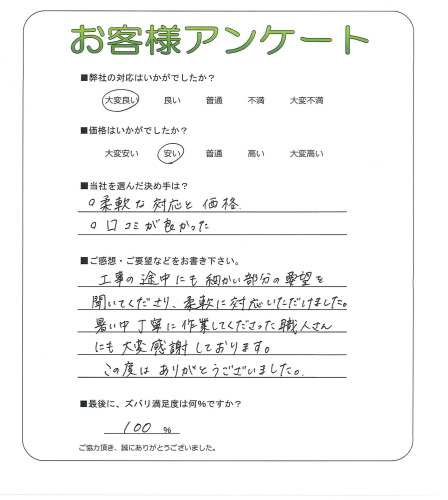 お客様アンケート
■弊社の対応はいかがでしたか?
大変良い 良い 普通 不満 大変不満
■価格はいかがでしたか?
大変安い 安い 普通 高い 大変高い
■当社を選んだ決め手は?
○柔軟な対応と価格
○口コミが良かった
■ご感想・ご要望などをお書き下さい。
工事の途中にも細かい部分の要望を
聞いてくださり、柔軟に対応いただけました。
暑い中丁寧に作業してくださった職人さん
にも大変感謝しております。
この度はありがとうございました。
■最後に、ズバリ満足度は何%ですか?
100 %
ご協力頂き、誠にありがとうございました。